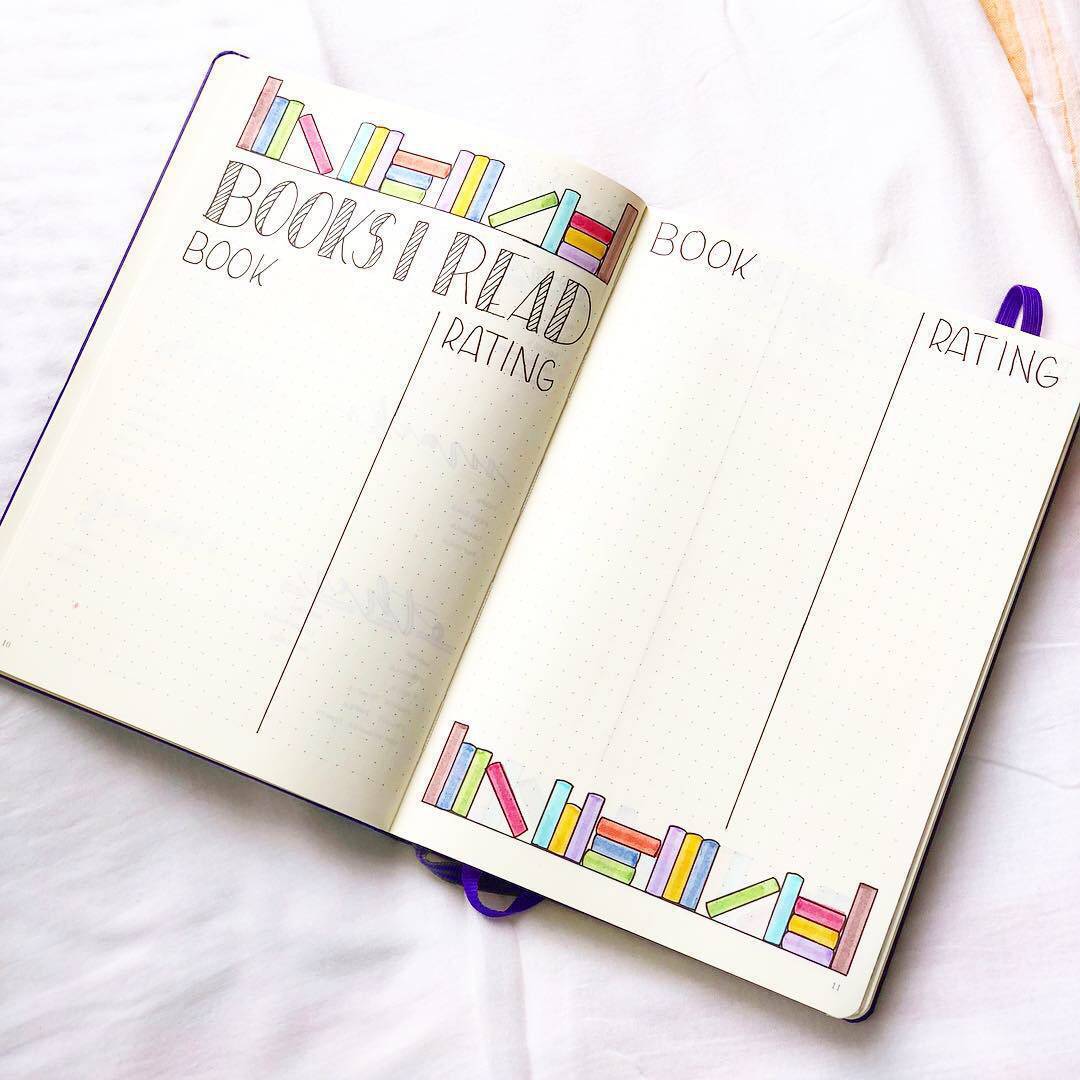 BOOKS I READ
BOOK
RATING
10
BOOK
RATING
11